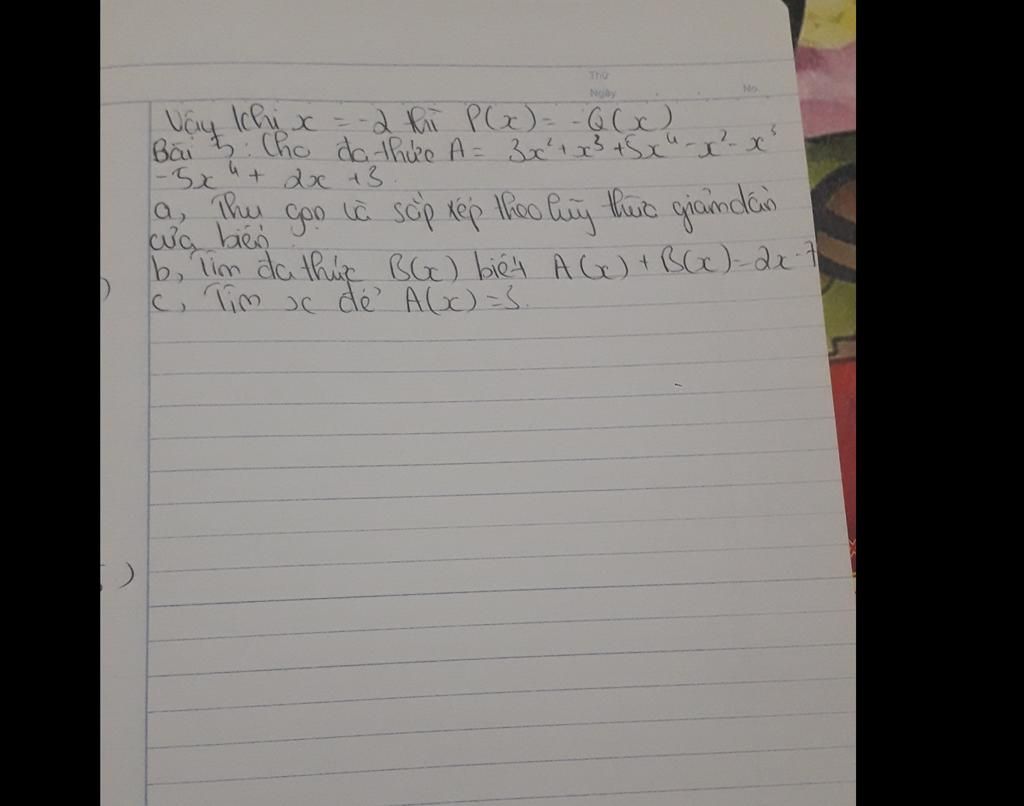 Thứ
Ngày . . No.
Vậy khi x = -2 thì P(x) = -Q(x)
Bài 5: Cho đa thức A = 3x² + x³ + 5x⁴ - x² - x³
-5x⁴ + 2x + 3.
a, Thu gọn và sắp xếp theo lũy thừa giảm dần
của biến.
b, Tìm đa thức B(x) biết A(x) + B(x) = 2x - 7
c, Tìm x để A(x) = 3.